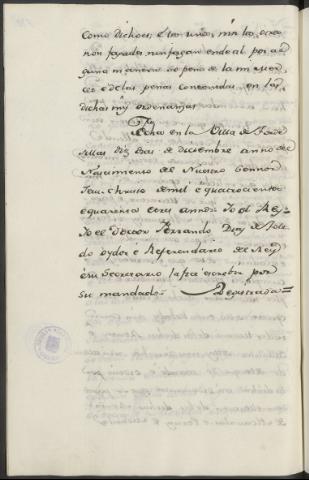 como dicho es, é los unos, nin los otros
non fagades nin fagan ende al por al
guna manera so pena de la mi mer
ced é de las penas contenidas en las
dichas mis ordenanzas
Fecha en la Villa de Torde
sillas diez dias de diciembre anno del
Nascimiento de Nuestro Sennor
Jesu-Christo de mil é quatrocientos
é quarenta é tres annos. Yo el Rey=
Yo el Doctor Ferrando Diaz de Tole
do oydor é Referendario del Rey
é su Secretario la fice escrebir por
su mandado= Registrada=